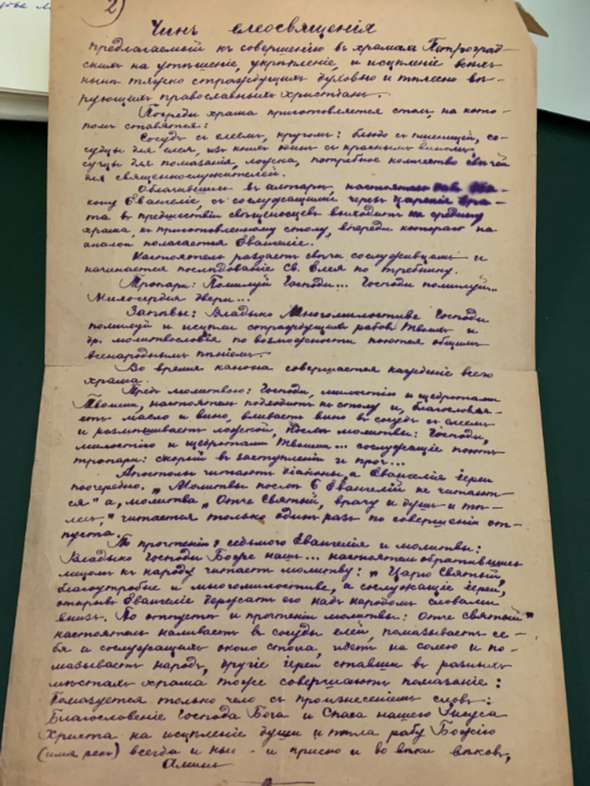 2)
Чинъ елеосвященія
предлагаемый къ совершенію въ храмахъ Петроград-
скихъ на утѣшеніе, укрѣпленіе, и исцѣленіе всѣхъ
нынѣ тяжко страждущихъ духовно и тѣлесно вѣ-
рующихъ православныхъ христіанъ.
Посреди храма приготовляется столъ, на кото-
ромъ ставятся:
Сосудъ съ елеемъ, кругомъ: блюдо съ пшеницей, со-
судцы для елея, изъ коихъ одинъ съ краснымъ виномъ,
сучцы для помазанія, ложка, потребное количество свѣчей
для священнослужителей.
Облачившись въ алтарѣ, настоятель
кому Евангеліе, съ сослужащими черезъ Царскія вра-
та въ предшествіи свѣщеносцевъ выходитъ на средину
храма, къ приготовленному столу, впереди котораго на
аналоѣ полагается Евангеліе.
Настоятель раздаетъ свѣчи сослужившимъ и
начинается послѣдованіе Св. Елея по требнику.
Тропари: Помилуй Господи... Господи помилуй...
Милосердія двери...
Запѣвы: Владыко Многомилостиве Господи
помилуй и исцѣли страждущихъ рабовъ Твоихъ и
др. молитвословія по возможности поются общимъ
всенароднымъ пѣніемъ.
Во время канона совершается кажденіе всего
храма.
Предъ молитвою: Господи, милостію и щедротами
Твоими, настоятель подходитъ къ столу и, благословля-
етъ масло и вино, вливаетъ вино въ сосудъ съ елеемъ
и размѣшиваетъ ложкой, послѣ молитвы: Господи,
милостію и щедротами Твоими... сослужащіе поютъ
тропари: скорый въ заступленіи и проч...
Апостолы читаютъ діаконы, а Евангелія іереи
поочередно. „Молитвы послѣ 6 Евангелій не читают-
ся" а, молитва „Отче Святый, врачу и душъ и тѣ-
лесъ," читается только одинъ разъ по совершеніи от-
пуста.
По прочтеніи седьмого Евангелія и молитвы:
Владыко Господи Боже нашъ... настоятель обратившись
лицомъ къ народу читаетъ молитву: „Царю Святый,
благоутробне и многомилостиве, и сослужащіе іереи,
открывъ Евангеліе держатъ его надъ народомъ словами
внизъ. По отпустѣ и прочтеніи молитвы: Отче святый"
настоятель наливаетъ въ сосуды елей, помазываетъ се-
бя и сослужащихъ около стола, идетъ на солею и по-
мазываетъ народъ, другіе іереи ставши въ разныхъ
мѣстахъ храма тоже совершаютъ помазаніе:
Помазуется только чело съ произнесеніемъ словъ:
Благословеніе Господа Бога и Спаса нашего Іисуса
Христа на исцѣленіе души и тѣла рабу Божію
(имя рекъ) всегда и нынѣ и присно и во вѣки вѣковъ,
Аминь